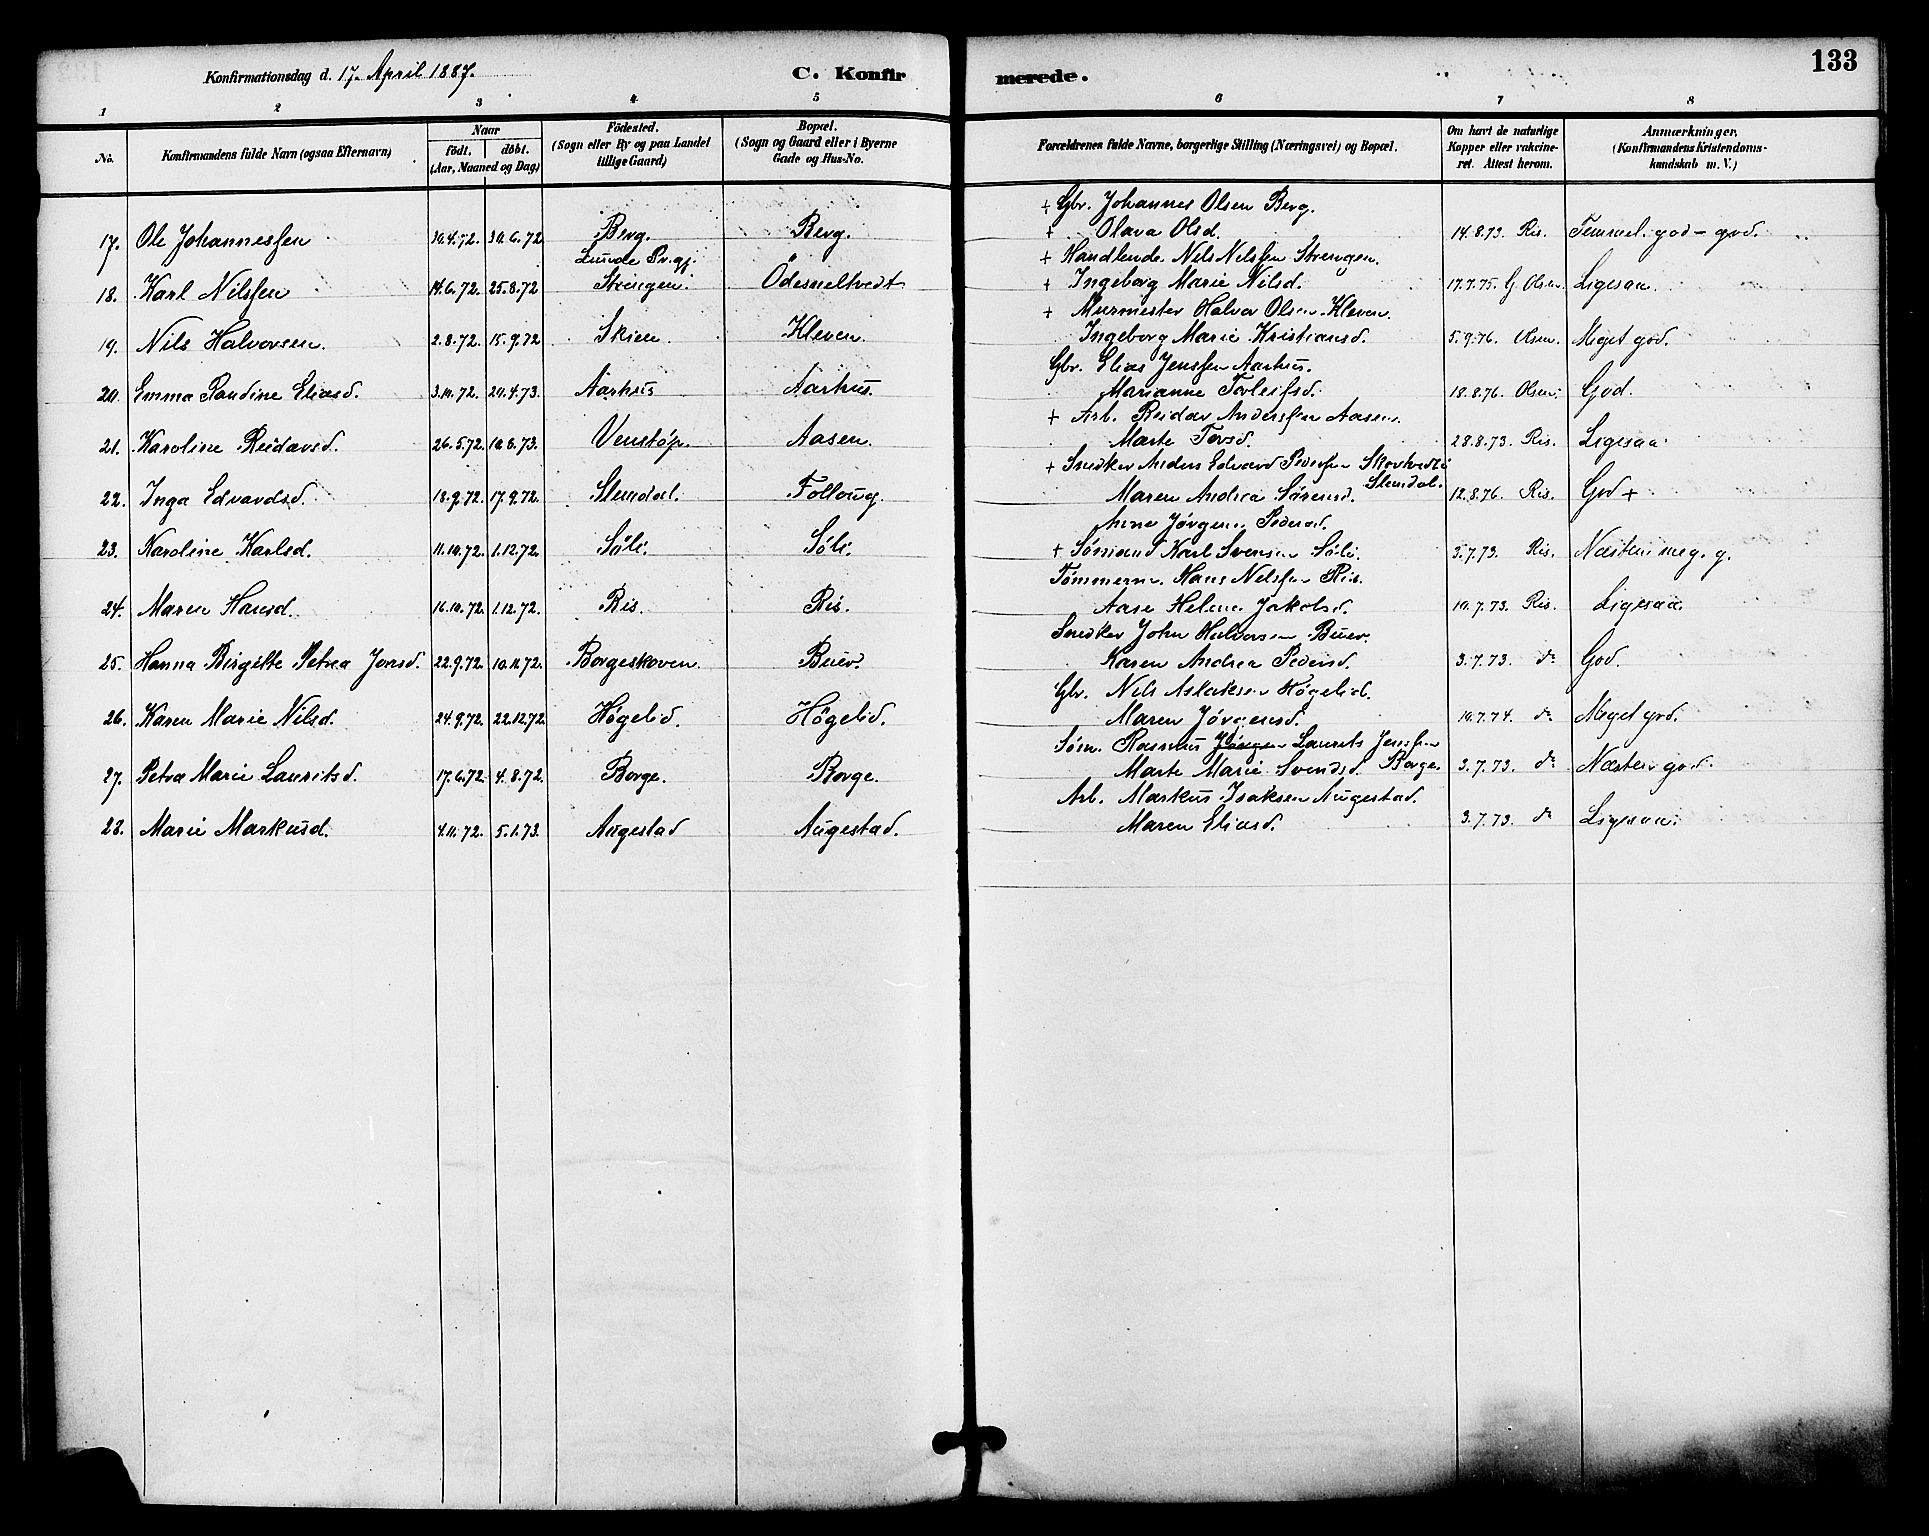 Konfirmationsdag d. 17. April 1887. C. Konfirmerede. 133
1 2 3 4 5 6 7 8
No. Konfirmandens fulde Navn (ogsaa Efternavn) Naar födt. döbt. (Aar, Maaned og Dag) Födested. (Sogn eller By og paa Landet tillige Gaard) Bopæl. (Sogn og Gaard eller i Byerne Gade og Hus-No. Forældrenes fulde Navne, borgerlige Stilling (Næringsvei) og Bopæl. Om havt de naturlige Kopper eller vakcineret. Attest herom. Anmærkninger. (Konfirmandens Kristendomskundskab m. V.)
+ Gbr. Johannes Olsen Berg.
17. Ole Johannessen 30.4.72. 30.6.72 Berg. Berg. + Olava Olsd. 14.8.73. Ris. Temmel. god - god.
Lunde Pr.gj. + Handlende Nils Nilssen Strengen.
18. Karl Nilssen 14.6.72. 25.8.72 Strengen. Ödesneltvedt + Ingeborg Marie Nilsd. 17.7.75. G. Olsen Ligesaa.
+ Murmester Halvor Olsen Kleven.
19. Nils Halvorsen. 2.8.72. 15.9.72 Skien Kleven. Ingeborg Marie Kristiansd. 5.9.76. Olsen. Meget god.
Gbr. Elias Jenssen Aarhus.
20. Emma Randine Eliasd. 3.10.72. 20.4.73. Aarhus Aarhus. Marianne Torleifsd. 18.8.76. Olsen. God.
+ Arb. Reidar Anderssen Aasen.
21. Karoline Reidarsd. 26.5.72. 10.8.73. Venstøp. Aasen. Marte Torsd. 28.8.73. Ris. Ligesaa.
+ Snedker Anders Edvard Pederssen
22. Inga Edvardsd. 18.9.72. 17.9.72. Slemdal. Follaug. Maren Andrea Sørensd. Slemdal. 12.8.76. Ris. God +
Anne Jørgine Pedersd.
23. Karoline Karlsd. 11.10.72. 1.12.72. Søli. Søli. + Sømand Karl Svensen Søli. 3.7.73. Ris. Næsten meg. g.
Tømmerm. Hans Nilssen Ris.
24. Maren Hansd. 16.10.72. 1.12.72. Ris. Ris. Aase Helene Jakobsd. 10.7.73. Ris. Ligesaa.
Snedker John Halvorsen Buer.
25. Hanna Birgitte Petrea Jonsd. 22.9.72. 10.11.72. Borgeskoven. Buer. Karen Andrea Pedersd. 3.7.73. do God.
Gbr. Nils Aslaksen Høgelid.
26. Karen Marie Nilsd. 24.9.72. 22.12.72. Høgelid. Høgelid. Maren Jørgensd. 10.7.74. do Meget god.
Søm. Rasmus Jørgen Laurits Jenssen
27. Petra Marie Lauritsd. 17.6.72. 4.8.72. Borge. Borge. Marte Marie Svendsd. Borge. 3.7.73. do Næsten god.
Arb. Markus Isaksen Augestad.
28. Marie Markusd. 4.11.72. 5.1.73. Augestad Augestad. Maren Eliasd. 3.7.73. do Ligesaa.